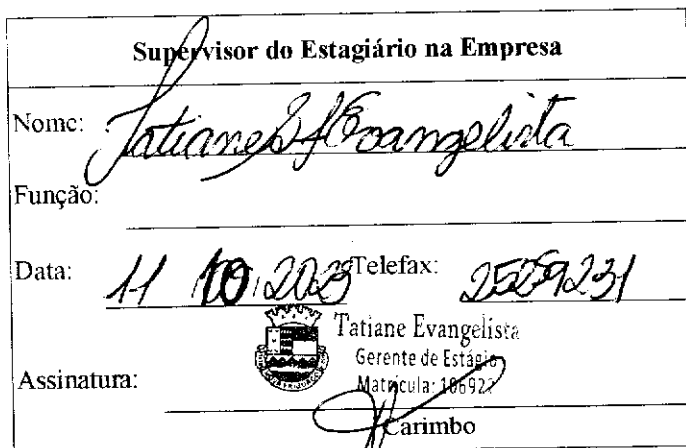 Supervisor do Estagiário na Empresa
Nome: Tatiane S f Evangelista
Função:
Data: 11 10 2023 Telefax: 25259231
Tatiane Evangelista
Gerente de Estágio
Matrícula:
Assinatura:
Carimbo